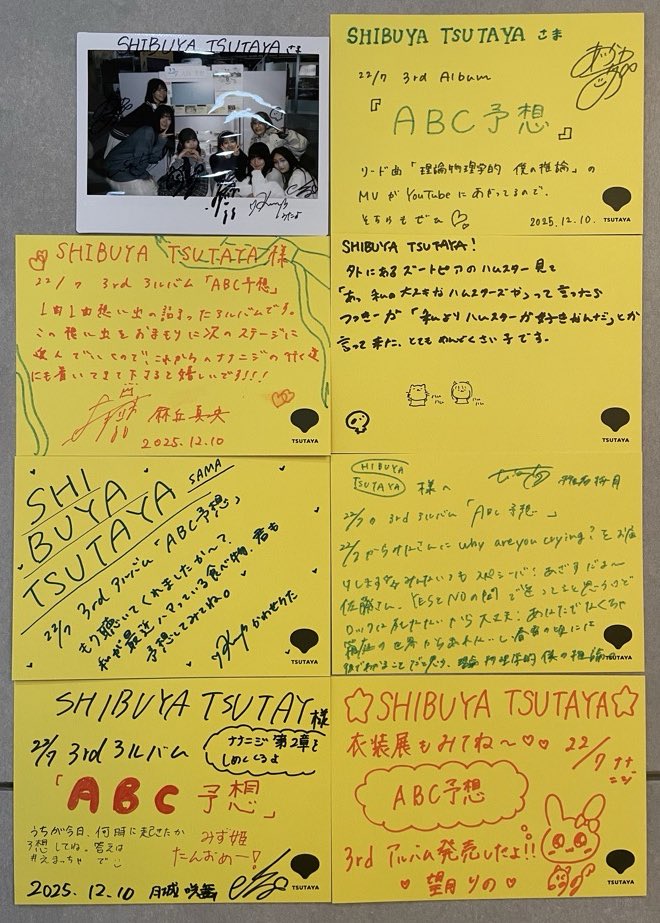 SHIBUYA TSUTAYA さま
SHIBUYA TSUTAYA さま
22/7 3rd Album
『ABC予想』
リード曲「理論物理学的 僕の推論」の
MVがYouTubeにあがってるので、
そちらもぜひ
2025.12.10.
TSUTAYA
SHIBUYA TSUTAYA 様
22/7 3rd アルバム「ABC予想」
1曲1曲想い出の詰まったアルバムです。
この想い出をおまもりに次のステージに
進んでいくので、これからのナナニジの行く道
にも着いてきて下さると嬉しいです!!!
麻丘真央
2025.12.10
TSUTAYA
SHIBUYA TSUTAYA!
外にあるズートピアのハムスター見て
「あっ私の大スキなハムスターズや」って言ったら
つきちーが「私よりハムスターが好きなんだ」とか
言って来た、とてもめんどくさい子です。
TSUTAYA
SHI
BUYA
TSUTAYA SAMA
22/7 3rd アルバム「ABC予想」
もう聴いてくれましたか〜?
私が最近ハマっている食べ物、君も
予想してみてね。
かわせうた
TSUTAYA
SHIBUYA
TSUTAYA 様へ
椎名桜月
22/7の 3rd アルバム「ABC予想」
22/7からみなさんに why are you crying? をお届
けします
佐藤さん、YESとNOの間で
ロックは死んだんだから大丈夫
の世界から
理論物理学的 僕の推論
TSUTAYA
SHIBUYA TSUTAY 様
22/7 3rd アルバム
ナナニジ 第2章を
しめくくるよ
「ABC予想」
うちが今日、何時に起きたか
予想してね。答えは
#えまっちゃ で
みず姫
たんおめー!
2025.12.10 月城咲舞
TSUTAYA
SHIBUYA TSUTAYA
衣装展もみてね〜♡♡
22/7 ナナニジ
ABC予想
3rd アルバム発売したよ!!
望月りの
TSUTAYA